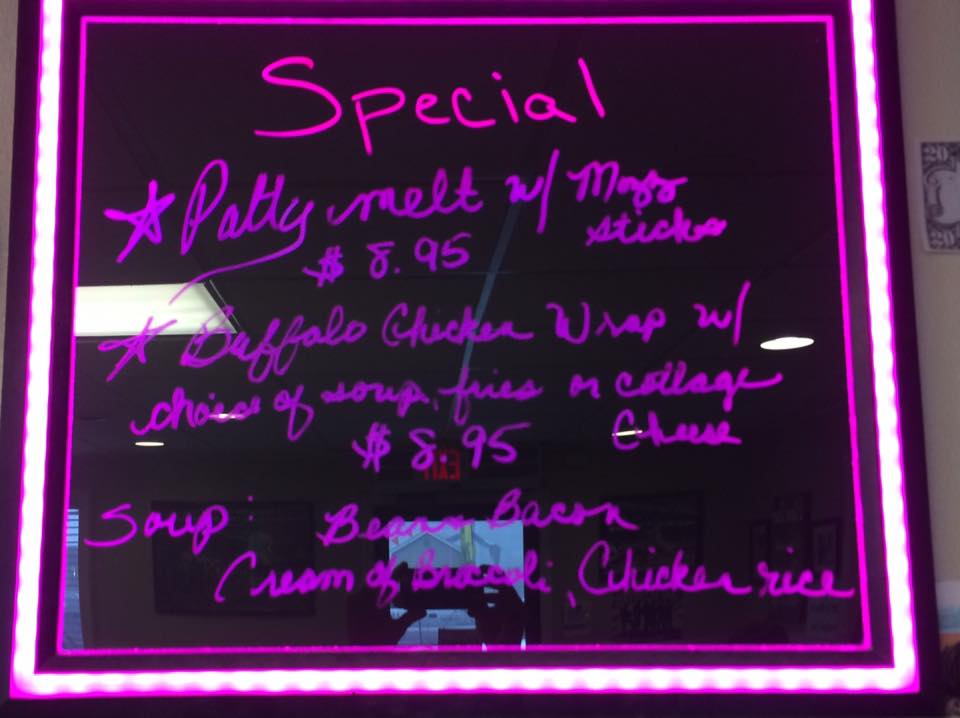 Special
☆ Patty melt w/ Mozz
sticks
$ 8.95
☆ Buffalo Chicken Wrap w/
choice of soup, fries or cottage
Cheese
$ 8.95
EXIT
Soup: Bean Bacon
Cream of Broccoli, Chicken rice
20
20